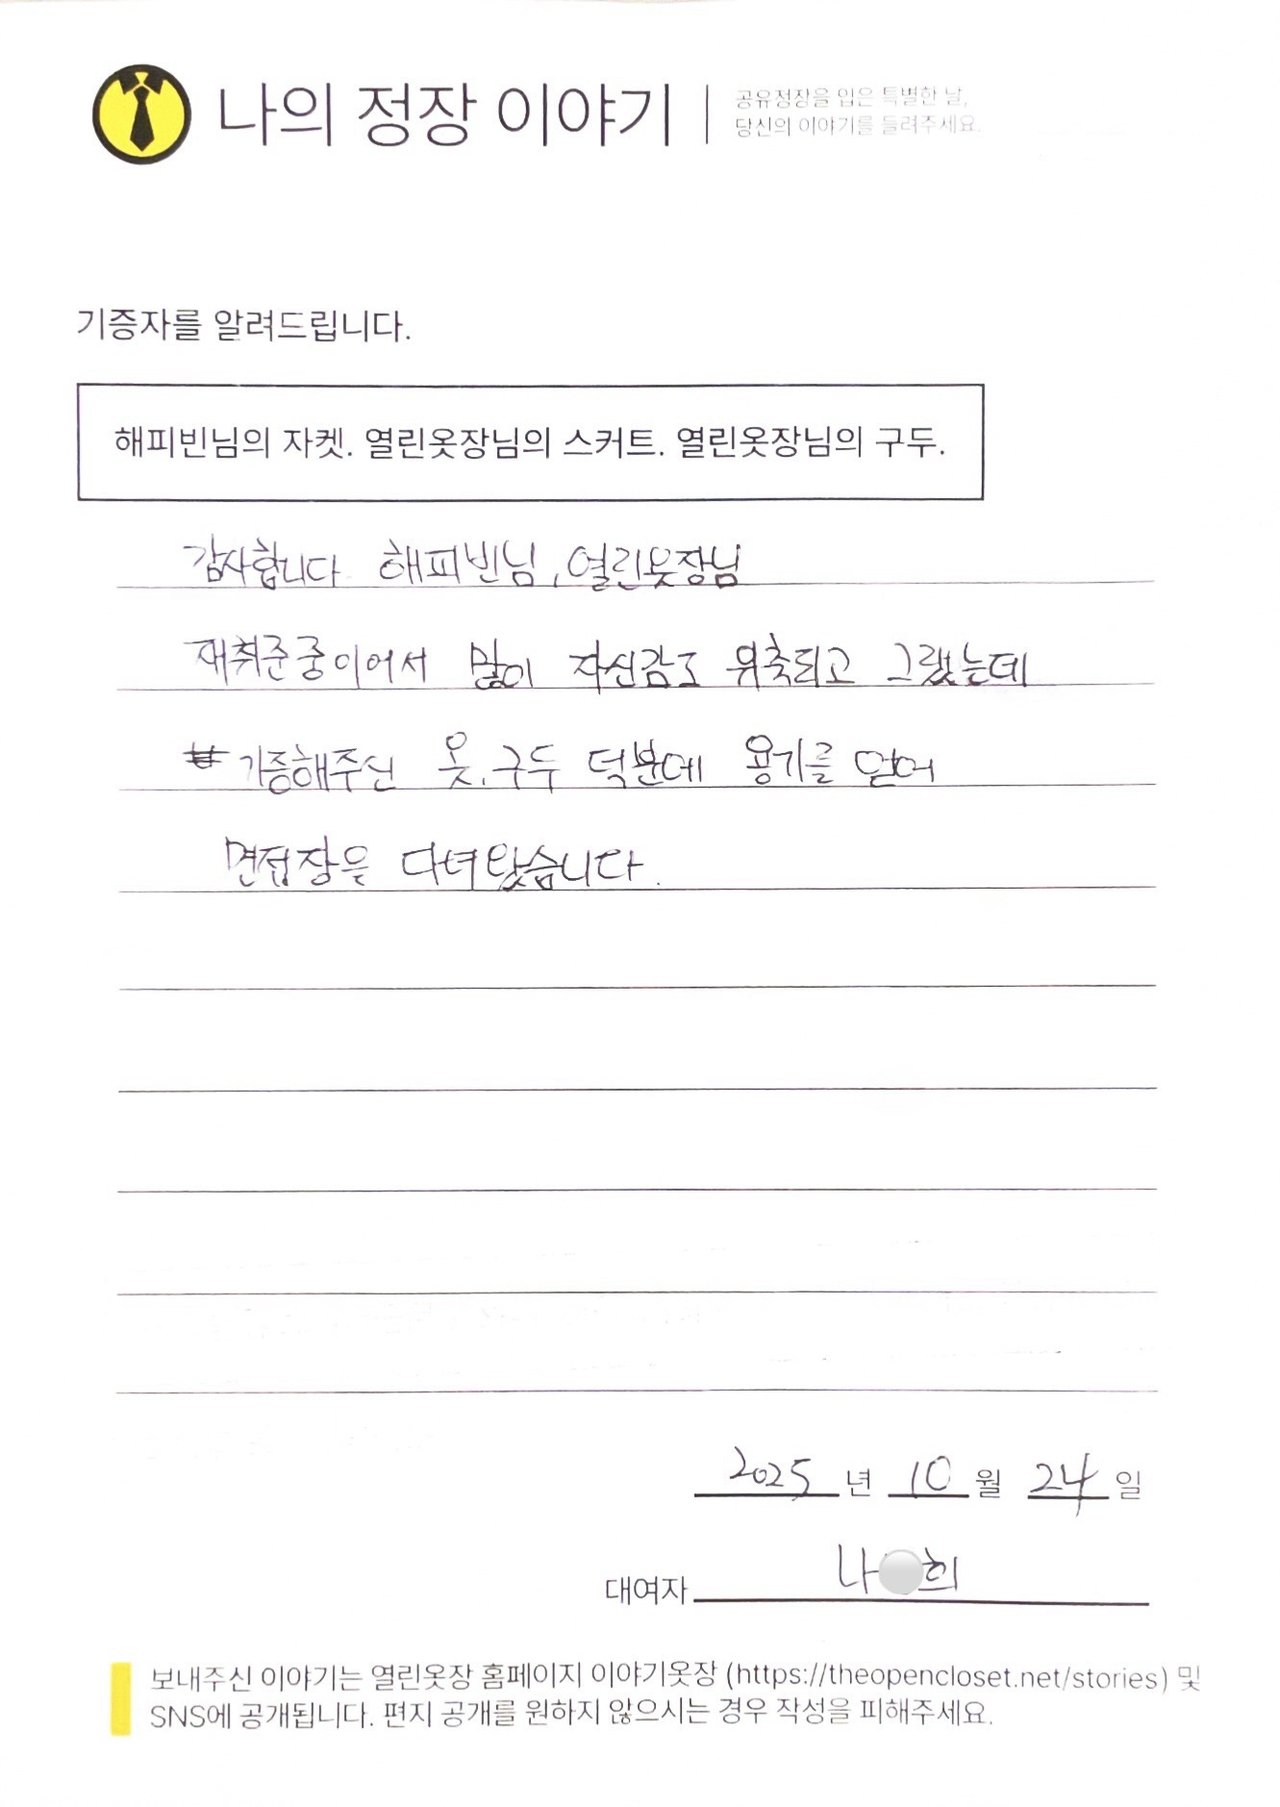 나의 정장 이야기
공유정장을 입은 특별한 날,
당신의 이야기를 들려주세요.
기증자를 알려드립니다.
해피빈님의 자켓. 열린옷장님의 스커트. 열린옷장님의 구두.
감사합니다 해피빈님, 열린옷장님
재취준중이어서 많이 자신감도 위축되고 그랬는데
기증해주신 옷, 구두 덕분에 용기를 얻어
면접장을 다녀왔습니다.
2025 년 10 월 24 일
대여자 나 희
보내주신 이야기는 열린옷장 홈페이지 이야기옷장 (https://theopencloset.net/stories) 및
SNS에 공개됩니다. 편지 공개를 원하지 않으시는 경우 작성을 피해주세요.